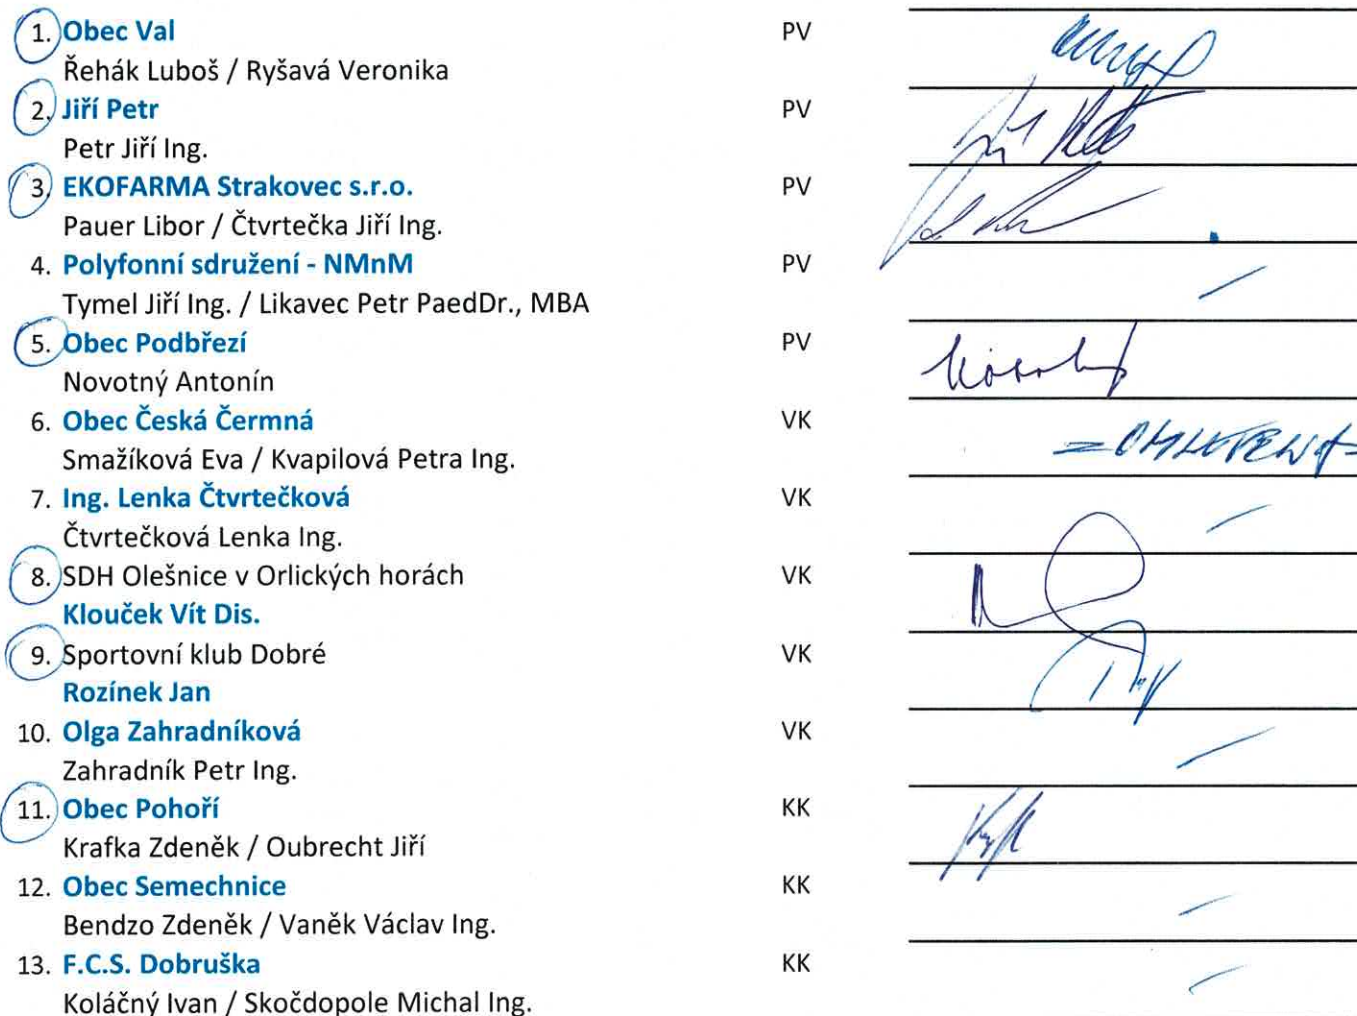 1. Obec Val PV
Řehák Luboš / Ryšavá Veronika
2. Jiří Petr PV
Petr Jiří Ing.
3. EKOFARMA Strakovec s.r.o. PV
Pauer Libor / Čtvrtečka Jiří Ing.
4. Polyfonní sdružení - NMnM PV
Tymel Jiří Ing. / Likavec Petr PaedDr., MBA
5. Obec Podbřezí PV
Novotný Antonín
6. Obec Česká Čermná VK
Smažíková Eva / Kvapilová Petra Ing.
7. Ing. Lenka Čtvrtečková VK
Čtvrtečková Lenka Ing.
8. SDH Olešnice v Orlických horách VK
Klouček Vít Dis.
9. Sportovní klub Dobré VK
Rozínek Jan
10. Olga Zahradníková VK
Zahradník Petr Ing.
11. Obec Pohoří KK
Krafka Zdeněk / Oubrecht Jiří
12. Obec Semechnice KK
Bendzo Zdeněk / Vaněk Václav Ing.
13. F.C.S. Dobruška KK
Koláčný Ivan / Skočdopole Michal Ing.